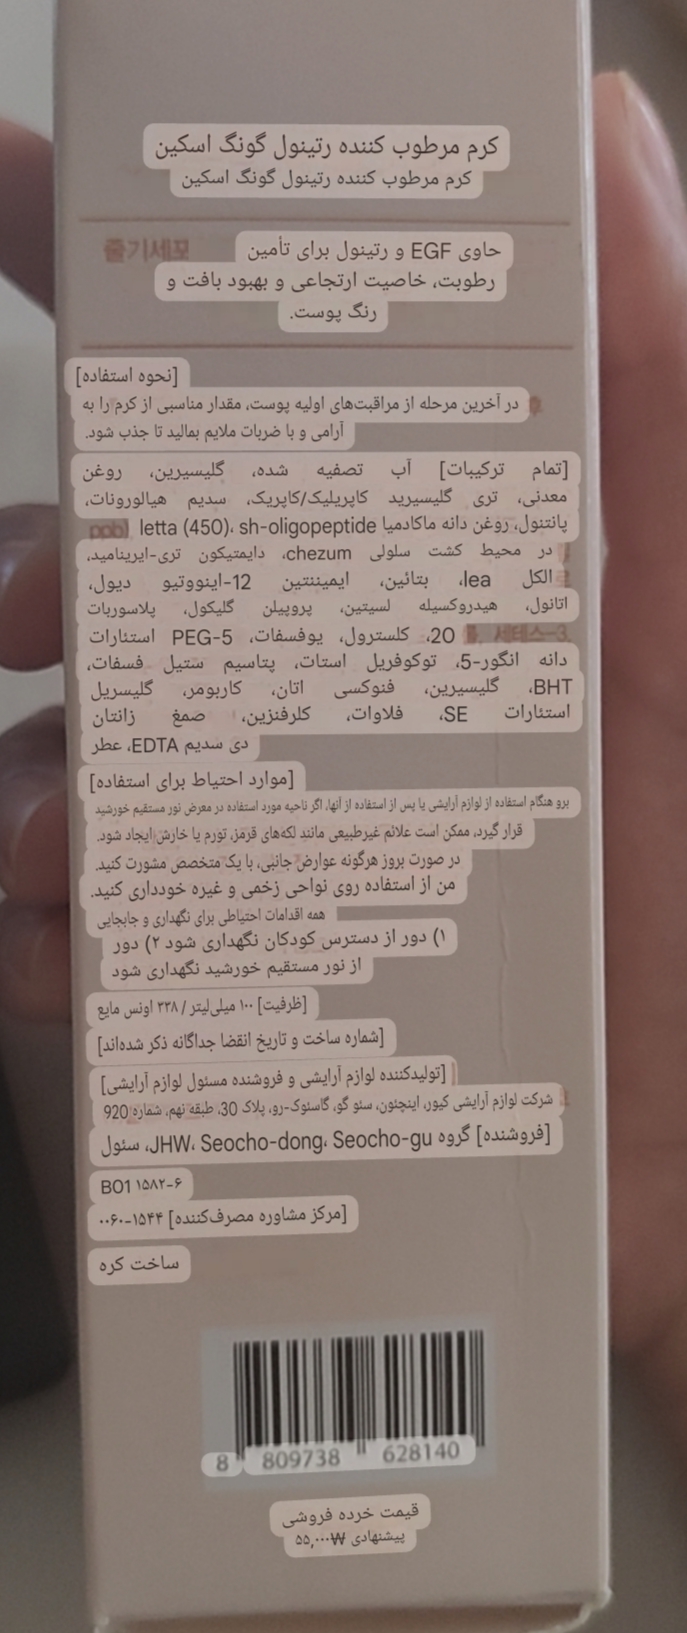 کرم مرطوب کننده رتینول گونگ اسکین
کرم مرطوب کننده رتینول گونگ اسکین
줄기세포
حاوی EGF و رتینول برای تأمین
رطوبت، خاصیت ارتجاعی و بهبود بافت و
رنگ پوست.
[نحوه استفاده]
در آخرین مرحله از مراقبت‌های اولیه پوست، مقدار مناسبی از کرم را به
آرامی و با ضربات ملایم بمالید تا جذب شود.
[تمام ترکیبات] آب تصفیه شده، گلیسیرین، روغن
معدنی، تری گلیسیرید کاپریلیک/کاپریک، سدیم هیالورونات،
پانتنول، روغن دانه ماکادمیا letta (450)، sh-oligopeptide
در محیط کشت سلولی chezum، دایمتیکون تری-ایرینامید،
الکل lea، بتائین، ایمیننتین 12-اینووتیو دیول،
اتانول، هیدروکسیله لسیتین، پروپیلن گلیکول، پلاسوربات
20، کلسترول، یوفسفات، PEG-5 استئارات
세테스-3
دانه انگور-5، توکوفریل استات، پتاسیم ستیل فسفات،
BHT، گلیسیرین، فنوکسی اتان، کاربومر، گلیسریل
استئارات SE، فلاوات، کلرفنزین، صمغ زانتان
دی سدیم EDTA، عطر
[موارد احتیاط برای استفاده]
برو هنگام استفاده از لوازم آرایشی یا پس از استفاده از آنها، اگر ناحیه مورد استفاده در معرض نور مستقیم خورشید
قرار گیرد، ممکن است علائم غیرطبیعی مانند لکه‌های قرمز، تورم یا خارش ایجاد شود.
در صورت بروز هرگونه عوارض جانبی، با یک متخصص مشورت کنید.
من از استفاده روی نواحی زخمی و غیره خودداری کنید.
همه اقدامات احتیاطی برای نگهداری و جابجایی
۱) دور از دسترس کودکان نگهداری شود ۲) دور
از نور مستقیم خورشید نگهداری شود
[ظرفیت] ۱۰۰ میلی‌لیتر / ۳۳۸ اونس مایع
[شماره ساخت و تاریخ انقضا جداگانه ذکر شده‌اند]
[تولیدکننده لوازم آرایشی و فروشنده مسئول لوازم آرایشی]
شرکت لوازم آرایشی کیور، اینچئون، سئو گو، گاسئوک-رو، پلاک 30، طبقه نهم، شماره 920
[فروشنده] گروه JHW، Seocho-dong، Seocho-gu، سئول
B01 ۱۵۸۲-۶
[مرکز مشاوره مصرف‌کننده] ۱۵۴۴-۰۰۶۰
ساخت کره
8 809738 628140
قیمت خرده فروشی
پیشنهادی ₩۵۵,۰۰۰